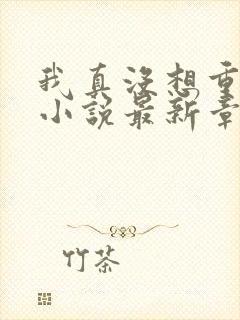 我真没想重
小说最新章
竹茶